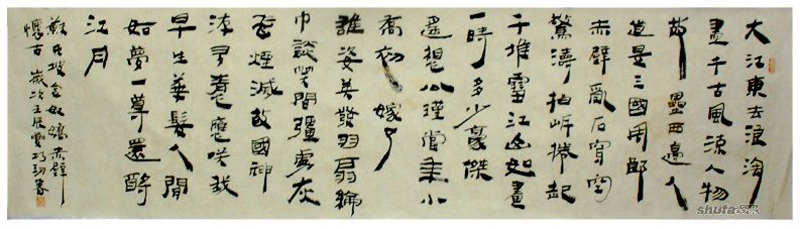 大江東去浪淘
盡千古風流人物
故壘西邊人
道是三國周郎
赤壁亂石穿空
驚濤拍岸捲起
千堆雪江山如畫
一時多少豪傑
遙想公瑾當年小
喬初嫁了
雄姿英發羽扇綸
巾談笑間彊虜灰
飛煙滅故國神
游多情應笑我
早生華髮人間
如夢一尊還酹
江月
蘇東坡念奴嬌赤壁
懷古 歲次壬辰
shufa